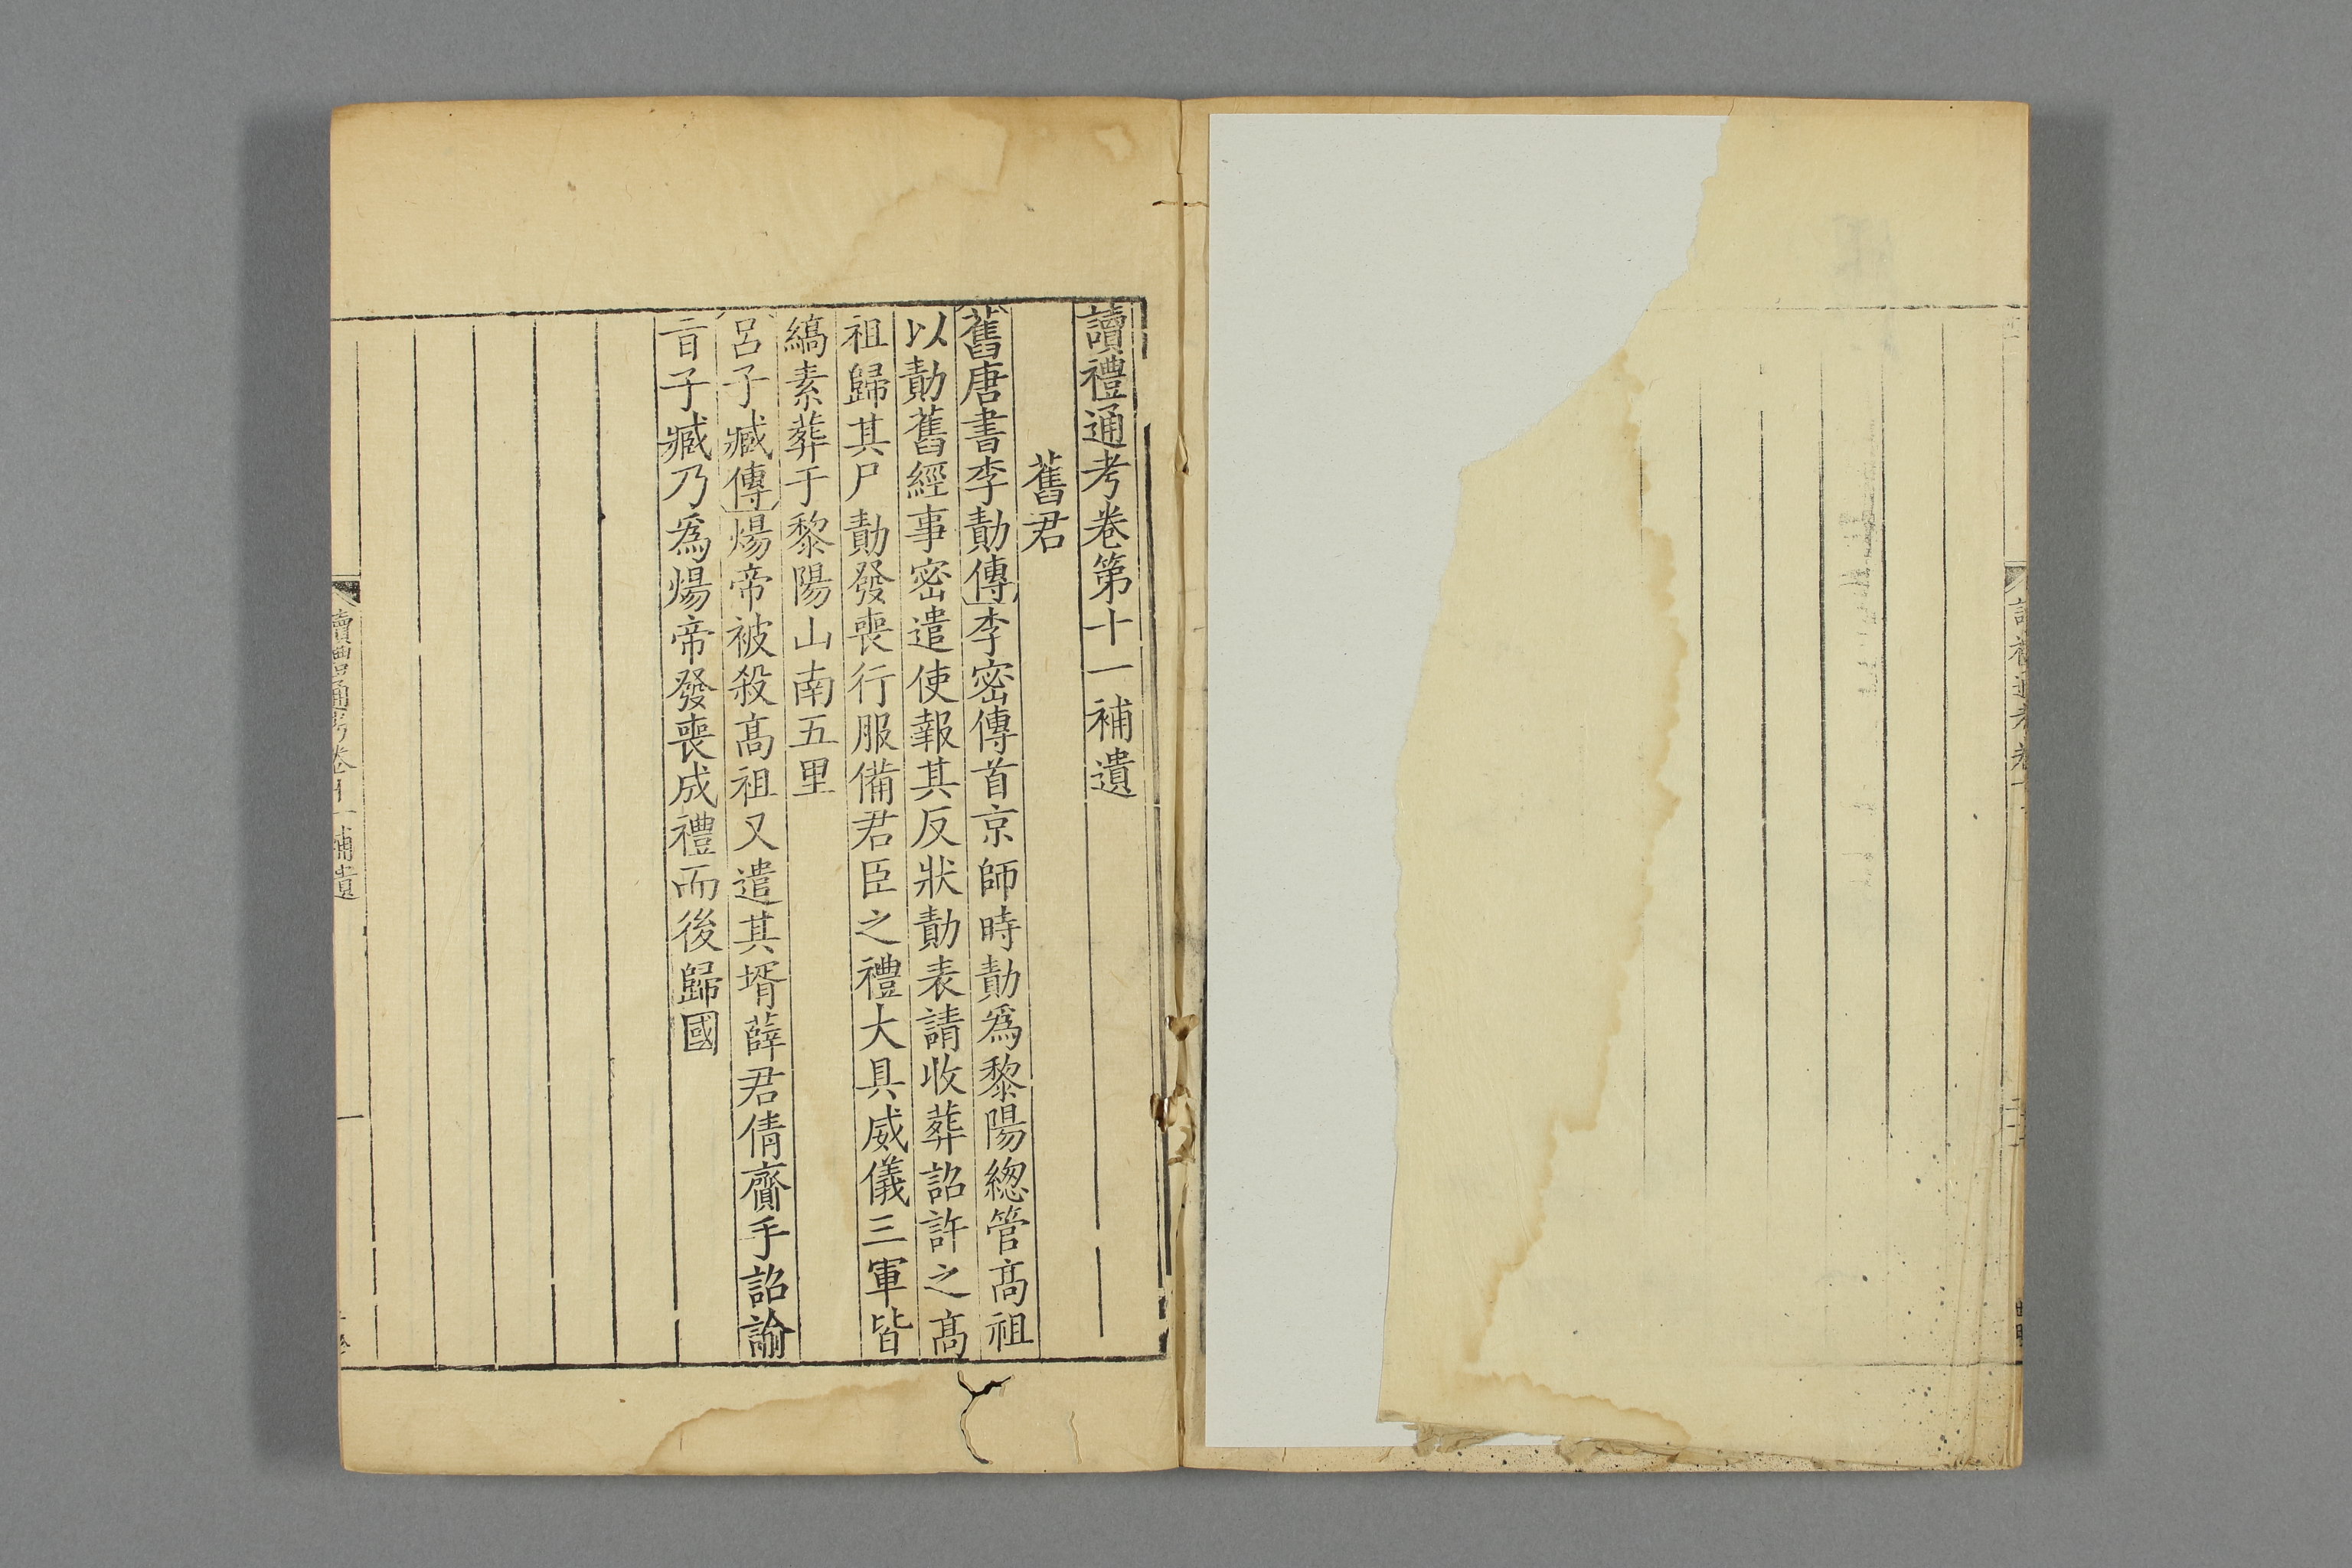 讀禮通考卷第十一補遺
舊君
舊唐書李勣傳李密傳首京師時勣爲黎陽緫管髙祖
以勣舊經事密遣使報其反狀勣表請收葬詔許之髙
祖歸其尸勣發喪行服備君臣之禮大具威儀三軍皆
縞素葬于黎陽山南五里
呂子臧傳煬帝被殺髙祖又遣其壻薛君倩齎手詔諭
㫖子臧乃爲煬帝發喪成禮而後歸國
讀禮通考卷十一補遺
一